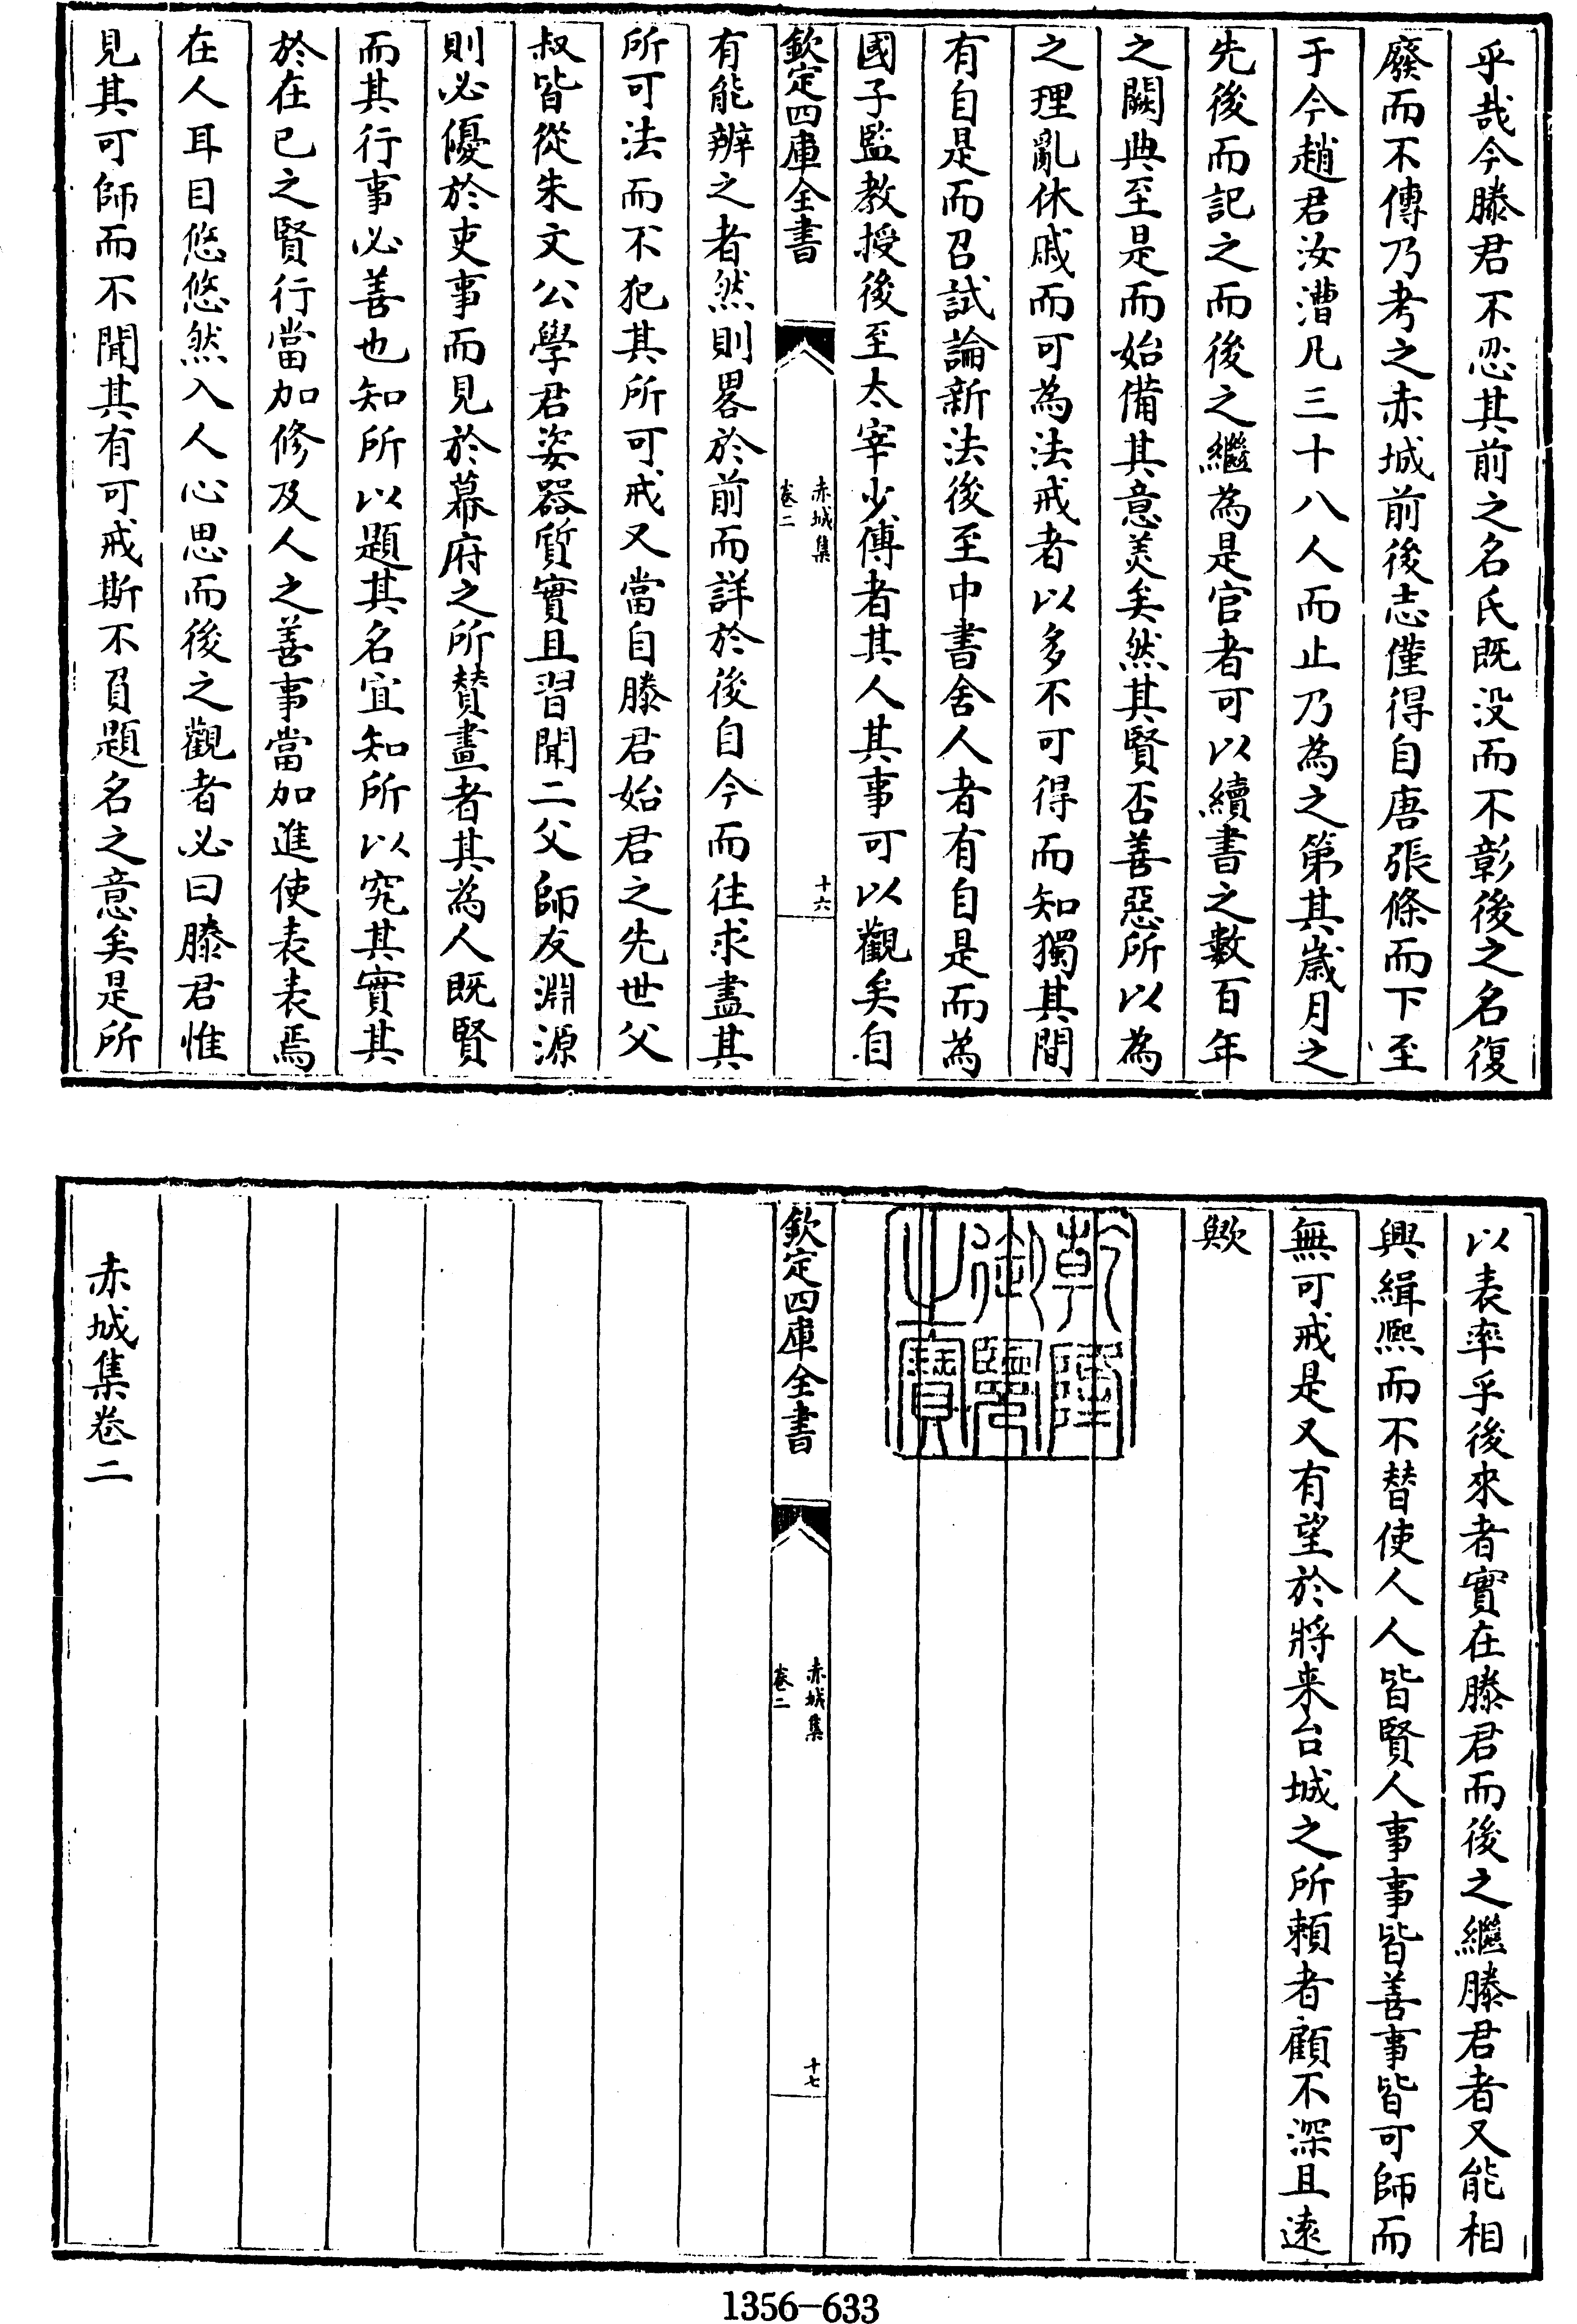 乎哉今滕君不忍其前之名氏既没而不彰後之名復
廢而不傳乃考之赤城前後志僅得自唐張條而下至
于今趙君汝漕凡三十八人而止乃為之第其歲月之
先後而記之而後之繼為是官者可以續書之數百年
之闕典至是而始備其意美矣然其賢否善惡所以為
之理亂休戚而可為法戒者以多不可得而知獨其間
有自是而召試論新法後至中書舍人者有自是而為
國子監教授後至太宰少傅者其人其事可以觀矣自
欽定四庫全書
赤城集
卷二
十六
有能辨之者然則畧於前而詳於後自今而往求盡其
所可法而不犯其所可戒又當自滕君始君之先世父
叔皆從朱文公學君姿器質實且習聞二父師友淵源
則必優於吏事而見於幕府之所贊畫者其為人既賢
而其行事必善也知所以題其名宜知所以究其實其
於在已之賢行當加修及人之善事當加進使表表焉
在人耳目悠悠然入人心思而後之觀者必曰滕君惟
見其可師而不聞其有可戒斯不負題名之意矣是所
以表率乎後來者實在滕君而後之繼滕君者又能相
興緝熈而不替使人人皆賢人事事皆善事皆可師而
無可戒是又有望於將来台城之所賴者顧不深且遠
歟
乾隆
御覽
之寶
欽定四庫全書
赤城集
卷二
十七
赤城集卷二
1356-633